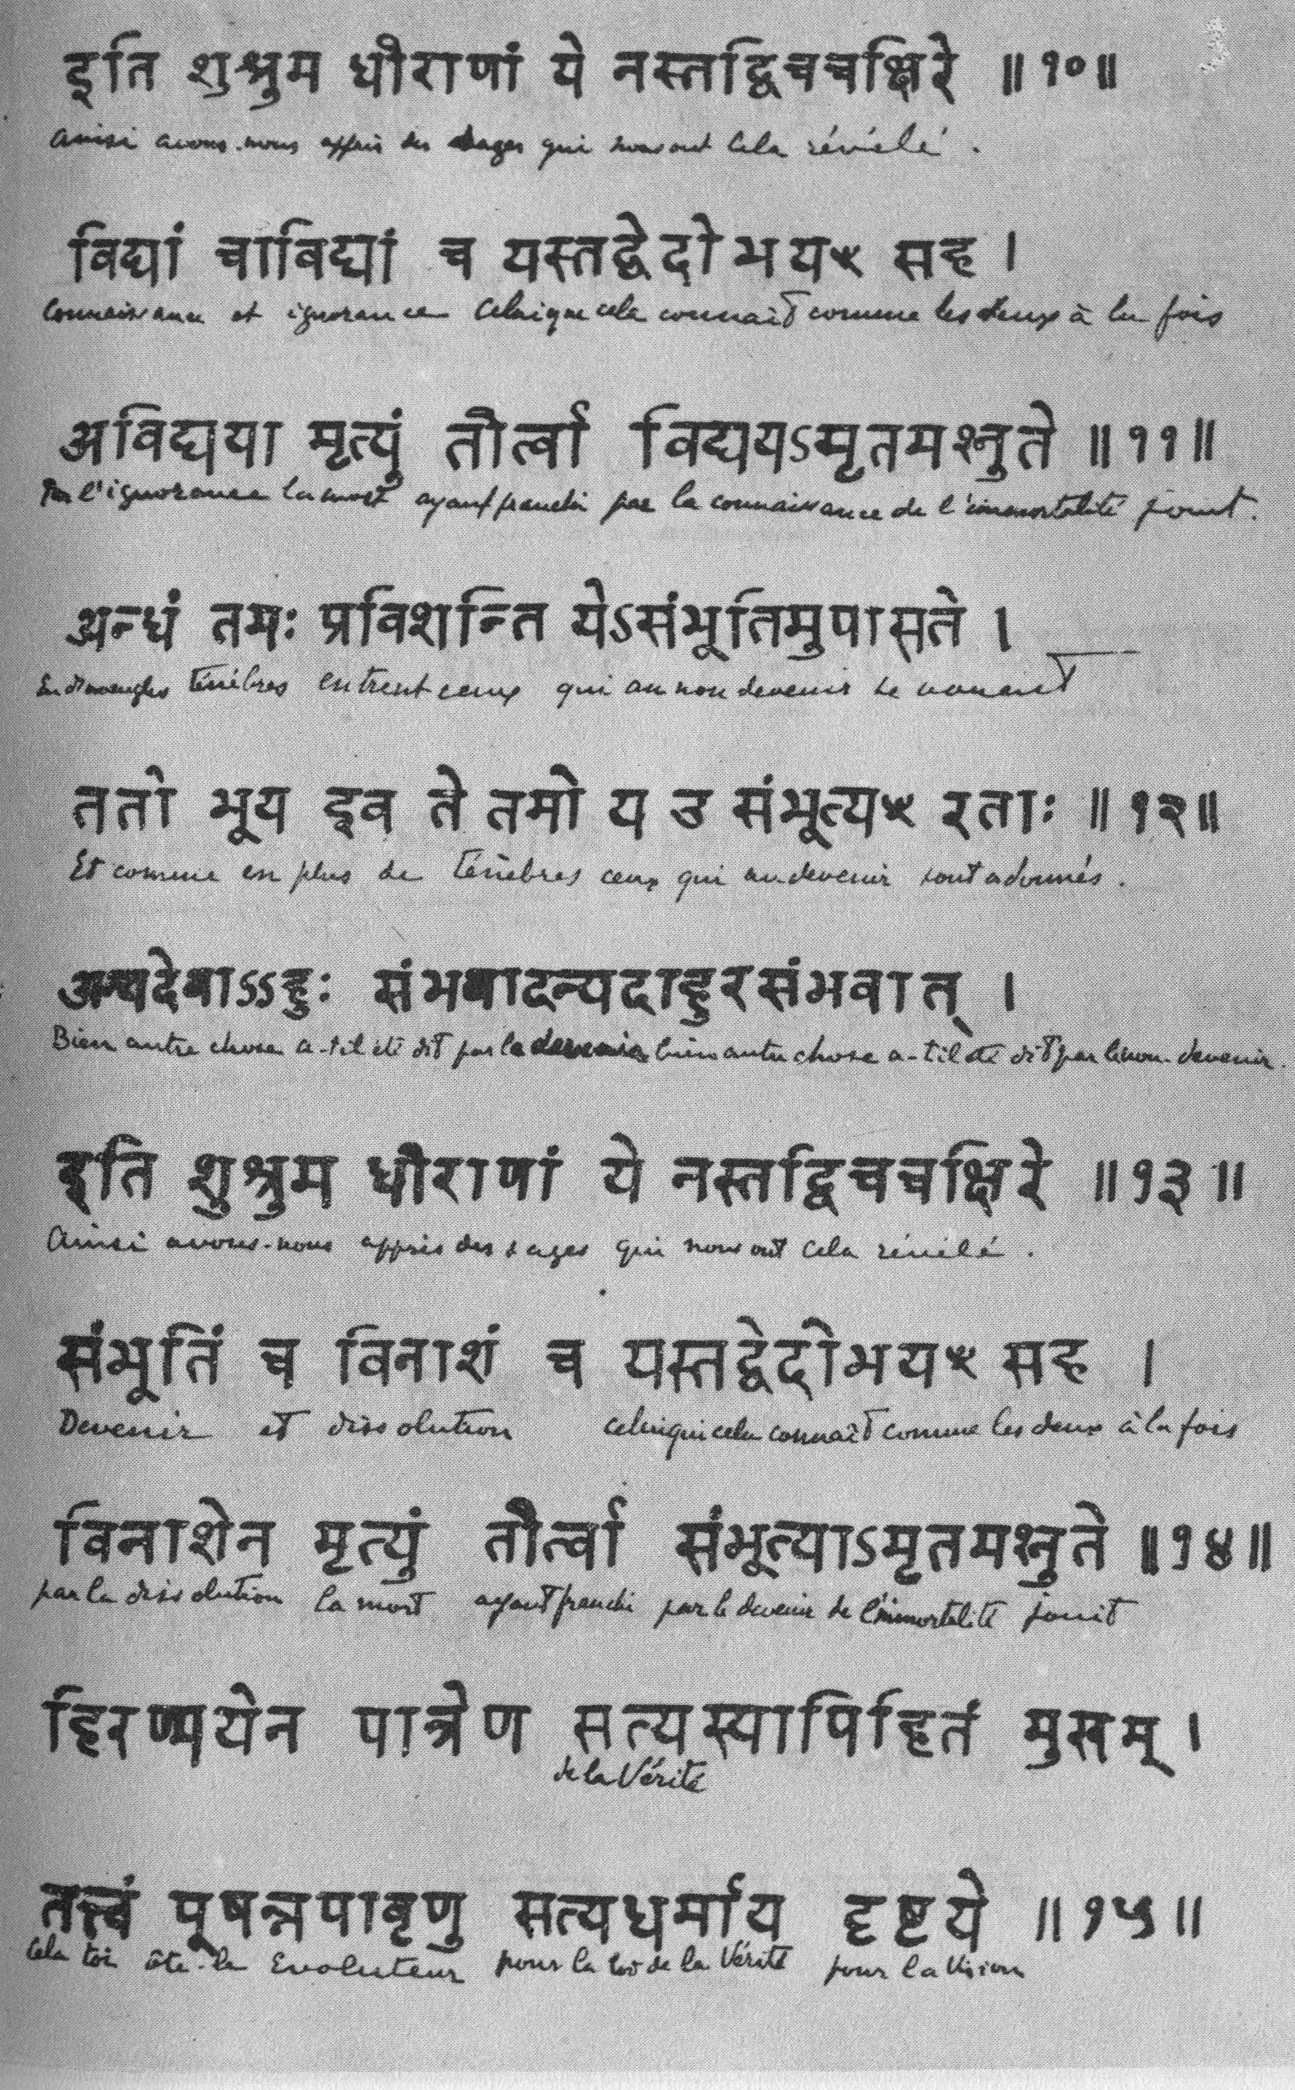 इति शुश्रुम धीराणां ये नस्तद्विचचक्षिरे ॥१०॥
Ainsi avons-nous appris des sages qui nous ont cela révélé.
विद्यां चाविद्यां च यस्तद्वेदोभयꣳ सह ।
Connaissance et ignorance celui que cela connaît comme les deux à la fois
अविद्यया मृत्युं तीर्त्वा विद्ययऽमृतमश्नुते ॥११॥
Par l'ignorance la mort ayant franchi par la connaissance de l'immortalité jouit.
अन्धं तमः प्रविशन्ति येऽसंभूतिमुपासते ।
En d'aveugles ténèbres entrent ceux qui au non devenir se vouent
ततो भूय इव ते तमो य उ संभूत्यꣳ रताः ॥१२॥
Et comme en plus de ténèbres ceux qui au devenir sont adonnés.
अन्यदेवाऽऽहुः संभवादन्यदाहुरसंभवात् ।
Bien autre chose a-t-il été dit par le devenir bien autre chose a-t-il été dit par le non-devenir.
इति शुश्रुम धीराणां ये नस्तद्विचचक्षिरे ॥१३॥
Ainsi avons-nous appris des sages qui nous ont cela révélé.
संभूतिं च विनाशं च यस्तद्वेदोभयꣳ सह ।
Devenir et dissolution celui qui cela connaît comme les deux à la fois
विनाशेन मृत्युं तीर्त्वा संभूत्याऽमृतमश्नुते ॥१४॥
par la dissolution la mort ayant franchi par le devenir de l'immortalité jouit
हिरण्मयेन पात्रेण सत्यस्यापिहितं मुखम् ।
de la Vérité
तत्त्वं पूषन्नपावृणु सत्यधर्माय दृष्टये ॥१५॥
Cela toi ôte-le Evoluteur pour la loi de la Vérité pour la Vision